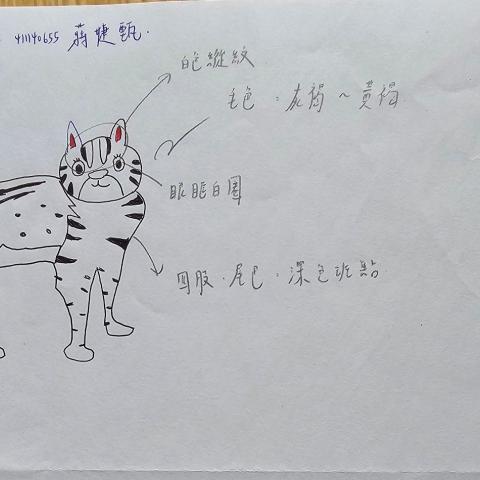 411140655 蔣婕甄.
白色縱紋
毛色：灰褐～黃褐
眼眶白圈
四肢、尾巴：深色斑點